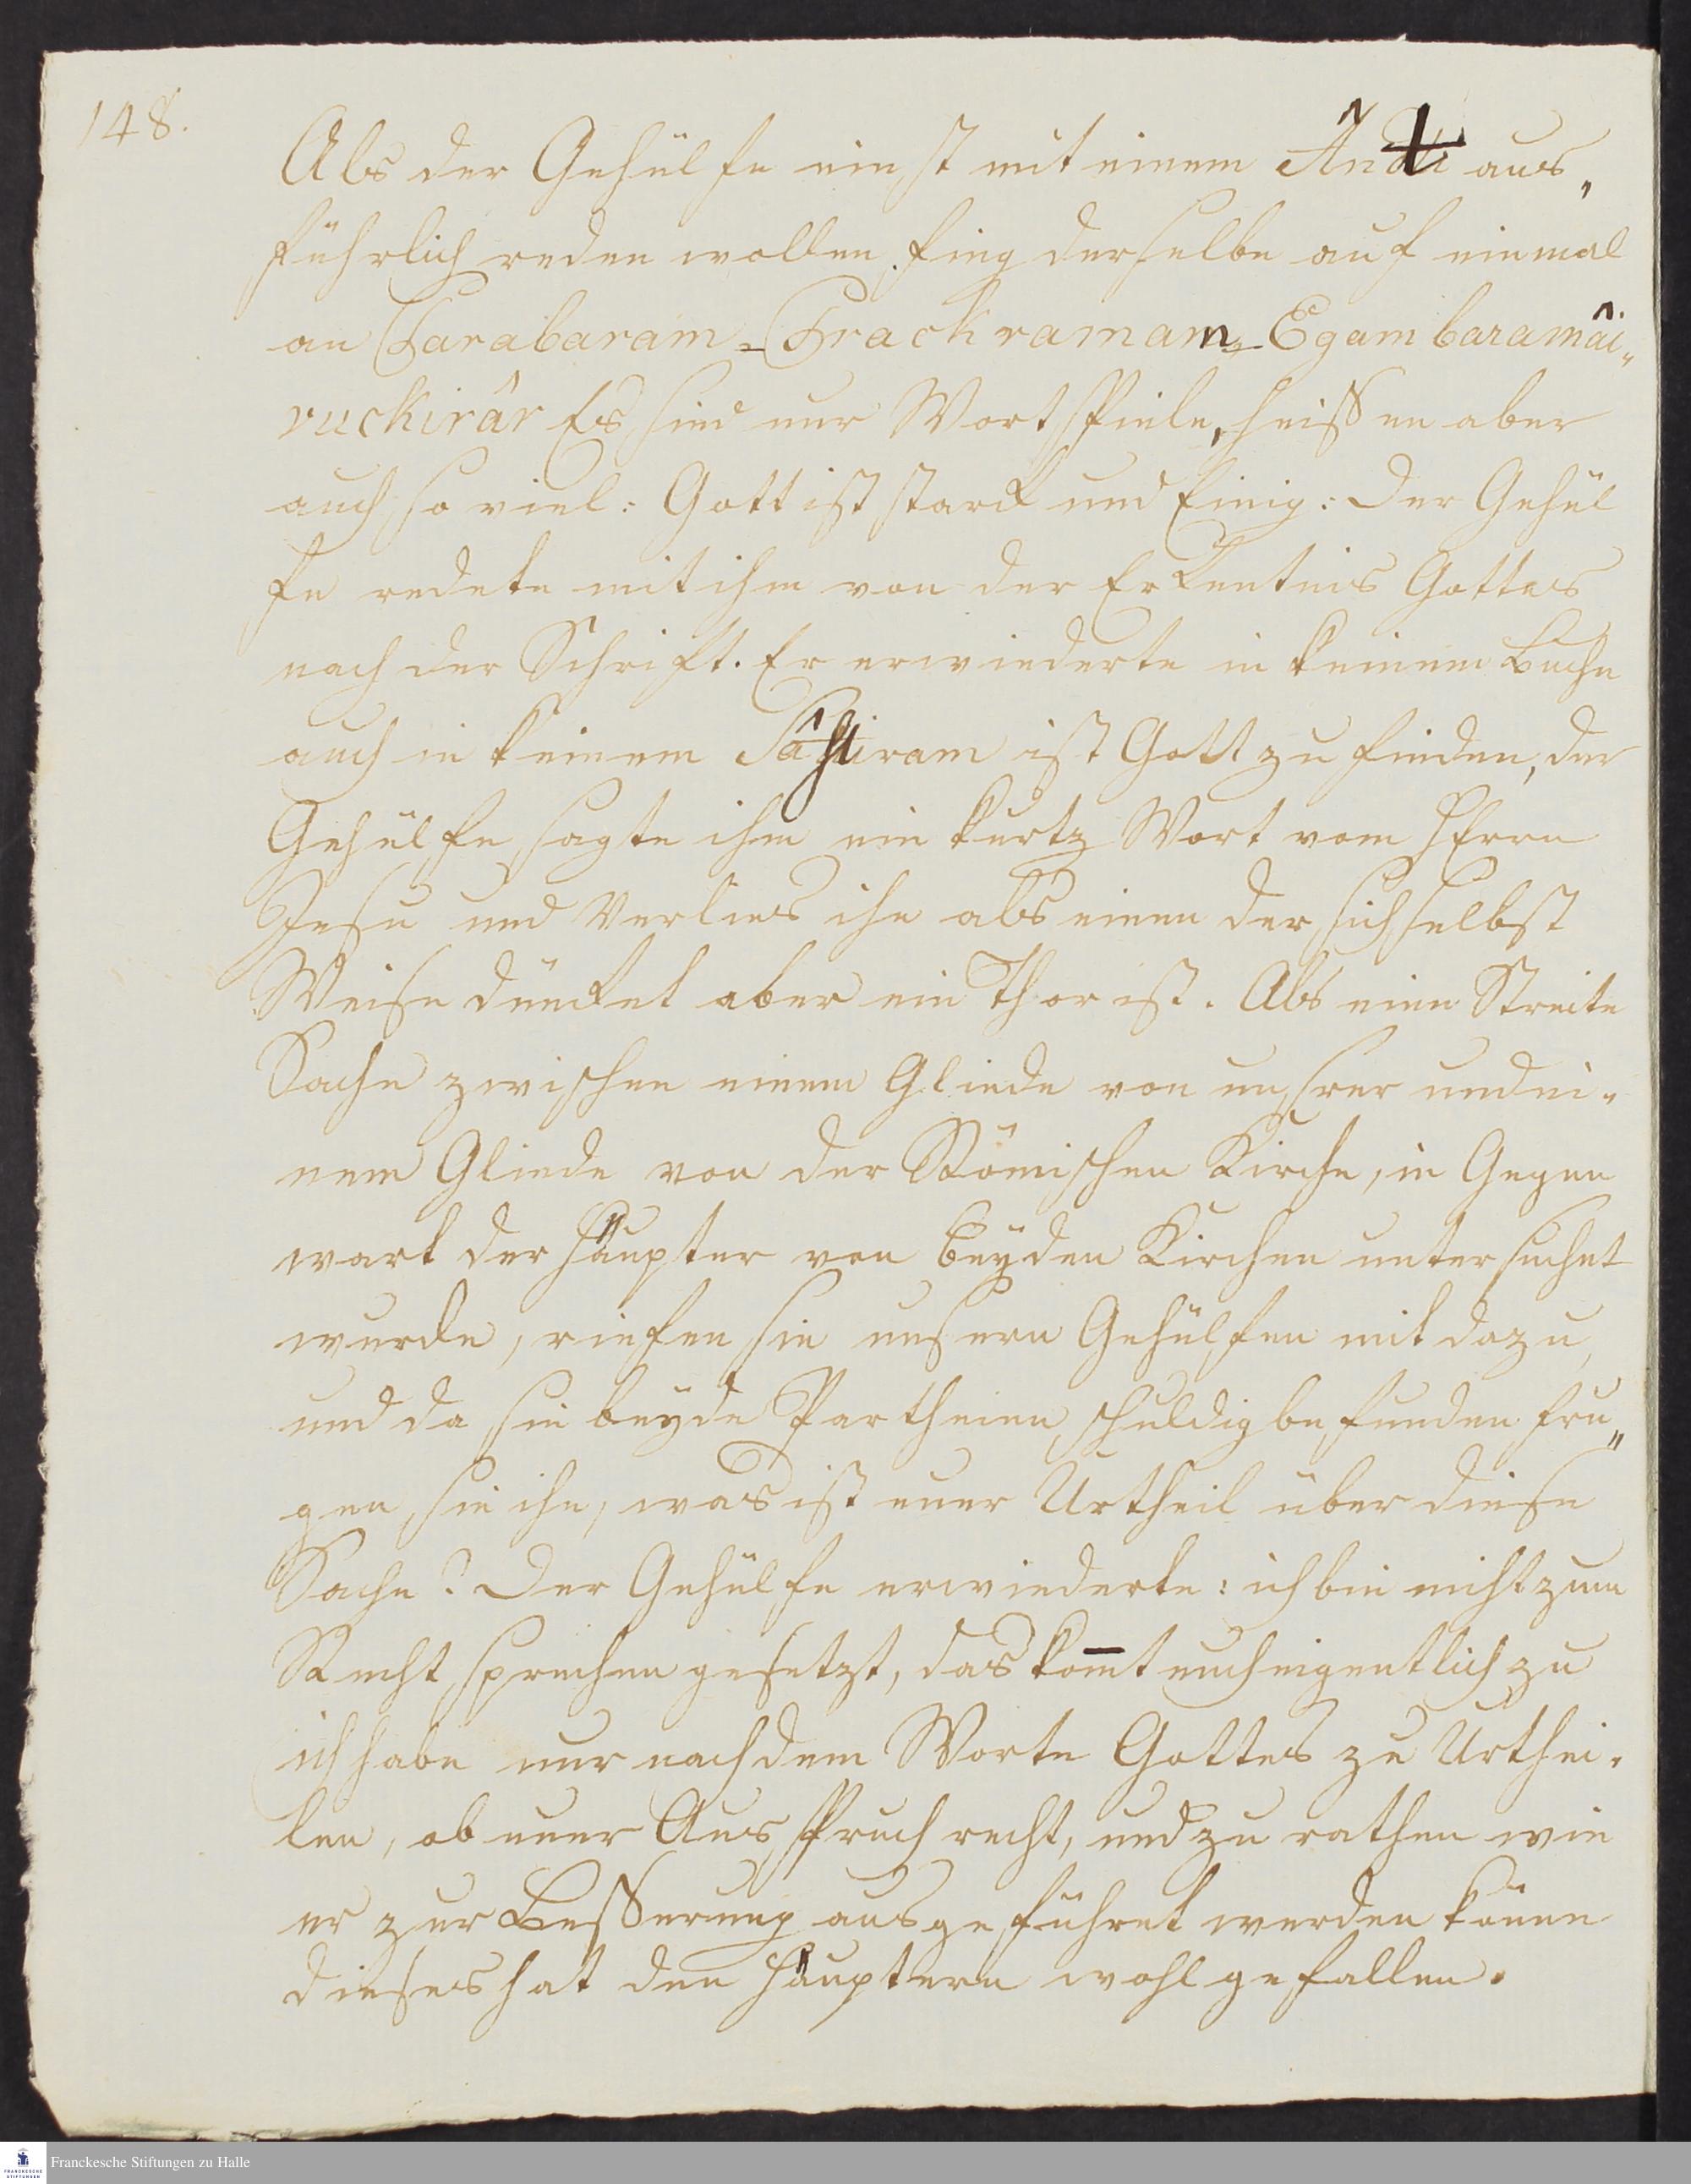 148.
Als der Gehülfe einst mit einem Ândi aus„
führlich reden wollen, fing derselbe auf einmal
an Barabaram-Brackramam-Egambaramâi„
ruckirâr Es sind nur Wortspiele, heissen aber
auch so viel: Gott ist starck und Einig: Der Gehül
fe redete mit ihm von der Erkentnis Gottes
nach der Schrift. Er erwiederte in keinem Buche
auch in keinem Sâstiram ist Gott zu finden, der
Gehülfe sagte ihm ein kurtz Wort vom HErrn
Jesu und Verlies ihn als einen der sich selbst
Weise düncket aber ein Thor ist. Als eine Streite
Sache zwischen einem Gliede von unsrer und ei„
nem Gliede von der Römischen Kirche, in Gegen
wart der Häupter von beyden Kirchen untersuchet
wurde, riefen sie unsern Gehülfen mit dazu,
und da sie beyde Partheien schuldig befunden fru„
gen sie ihn, was ist euer Urtheil über diese
Sache? Der Gehülfe erwiederte: ich bin nicht zum
Recht sprechen gesetzt, das kom̄t euch eigentlich zu
ich habe nur nach dem Worte Gottes zu Urthei„
len, ob euer Ausspruch recht, und zu rathen wie
er zur Besserung ausgeführet werden kön̄e
dieses hat den Häuptern wohl gefallen.
Franckesche Stiftungen zu Halle
FRANCKESCHE
STIFTUNGEN